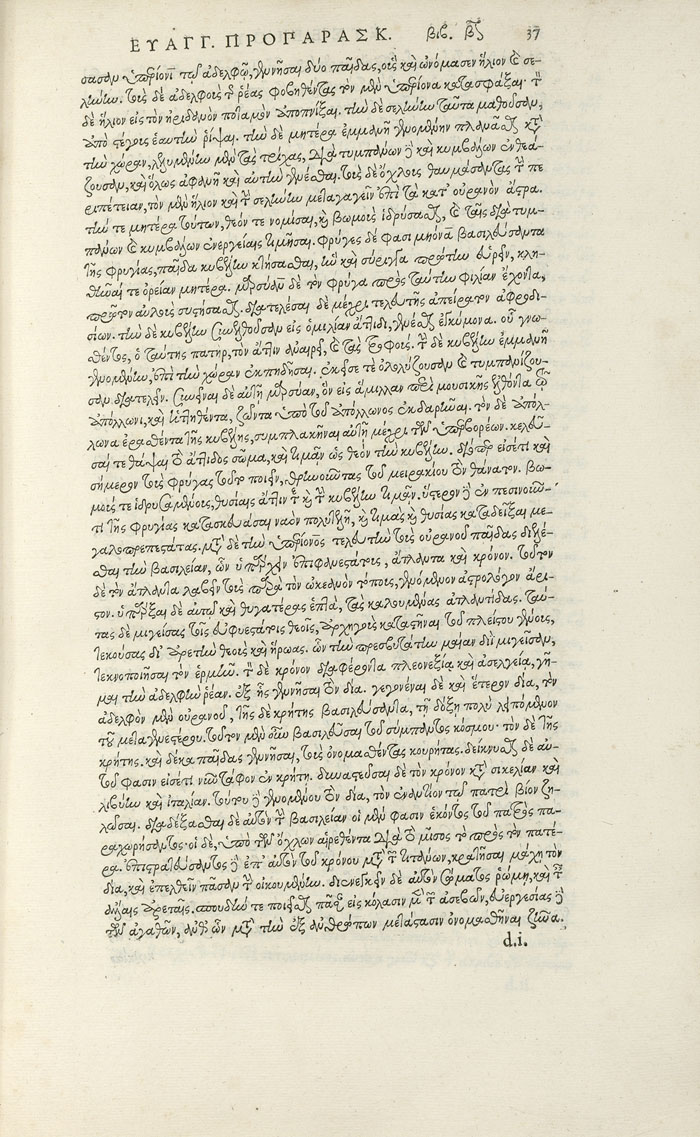 ΕΥΑΓΓ. ΠΡΟΠΑΡΑΣΚ. βιβ. β 37
σασαν ὑπερίονι τῷ ἀδελφῷ, γεννῆσαι δύο παῖδας, οὓς καὶ ὠνόμασεν ἥλιον καὶ σε-
λήνην. τοὺς δὲ ἀδελφοὺς τῆς ῥέας φοβηθέντας τὸν μὲν ὑπερίονα κατασφάξαι· τὸν
δὲ ἥλιον εἰς τὸν ἠριδανὸν ποταμὸν ἀποπνίξαι. τὴν δὲ σελήνην ταῦτα μαθοῦσαν,
ἀπὸ τέγους ἑαυτὴν ῥίψαι. τὴν δὲ μητέρα ἐμμανῆ γενομένην πλανᾶσθαι κατὰ
τὴν χώραν, λελυμένην μὲν τὰς τρίχας, διὰ τυμπάνων δὲ καὶ κυμβάλων ἐνθεά-
ζουσαν, καὶ ὅλως ἀφανῆ καὶ αὐτὴν γενέσθαι. τοὺς δὲ ὄχλους θαυμάσαντας τὴν πε
ριπέτειαν, τὸν μὲν ἥλιον καὶ τὴν σελήνην μεταγαγεῖν ἐπὶ τὰ κατ' οὐρανὸν ἄστρα.
τήν τε μητέρα τούτων, θεόν τε νομίσαι, καὶ βωμοὺς ἱδρύσασθαι, καὶ ταῖς διὰ τυμ-
πάνων καὶ κυμβάλων ἐνεργείαις τιμῆσαι. φρύγες δέ φασι μηόνα βασιλεύσαντα
τῆς φρυγίας, παῖδα κυβέλην κτήσασθαι, ἣν καὶ σύριγγα πρώτην εὑρεῖν, κλη-
θῆναί τε ὀρείαν μητέρα. μαρσύαν δὲ τὸν φρύγα πρὸς ταύτην φιλίαν ἔχοντα,
πρῶτον αὐλοὺς συστήσασθαι. διατελέσαι δὲ μέχρι τελευτῆς ἀπείρατον ἀφροδι-
σίων. τὴν δὲ κυβέλην συνελθοῦσαν εἰς ὁμιλίαν ἄτιδι, γενέσθαι ἐγκύμονα. οὗ γνωσ-
θέντος, ὁ ταύτης πατὴρ, τὸν ἄτιν ἀναιρεῖ, καὶ τὰς τροφούς. τὴν δὲ κυβέλην ἐμμανῆ
γενομένην, ἐπὶ τὴν χώραν ἐκπηδῆσαι. ἐκεῖσέ τε ὀλολύζουσαν καὶ τυμπανίζου-
σαν διατελεῖν. συνεῖναι δὲ αὐτῇ μαρσύαν, ὃν εἰς ἅμιλλαν περὶ μουσικῆς ἐλθόντα τῷ
ἀπόλλωνι, καὶ ἡττηθέντα, ζῶντα ὑπὸ τοῦ ἀπόλλωνος ἐκδαρῆναι. τὸν δὲ ἀπόλ-
λωνα ἐρασθέντα τῆς κυβέλης, συμπλακῆναι αὐτῇ μέχρι τῶν ὑπερβορέων. κελεῦ-
σαί τε θάψαι τὸ ἄτιδος σῶμα, καὶ τιμᾶν ὡς θεὸν τὴν κυβέλην. διόπερ εἰσέτι καὶ
σήμερον τοὺς φρύγας τοῦτο ποιεῖν, θρηνοῦντας τοῦ μειρακίου τὸν θάνατον. βω-
μούς τε ἱδρυσαμένους, θυσίαις ἄτιν τε καὶ τὴν κυβέλην τιμᾶν. ὕστερον δὲ ἐν πεσινοῦν-
τι τῆς φρυγίας κατασκευάσαι ναὸν πολυτελῆ, καὶ τιμὰς καὶ θυσίας καταδεῖξαι με-
γαλοπρεπεστάτας. μετὰ δὲ τὴν ὑπερίονος τελευτὴν τοὺς οὐρανοῦ παῖδας διελέ-
σθαι τὴν βασιλείαν, ὧν ὑπάρχειν ἐπιφανεστάτους, ἄτλαντα καὶ κρόνον. τοῦτον
δὲ τὸν ἄτλαντα λαβεῖν τοὺς παρὰ τὸν ὠκεανὸν τόπους, γενόμενον ἀστρολόγον ἄρι-
στον. ὑπάρξαι δὲ αὐτῷ καὶ θυγατέρας ἑπτὰ, τὰς καλουμένας ἀτλαντίδας. ταύ-
τας δὲ μιγείσας τοῖς εὐφυεστάτοις θεοῖς, ἀρχηγοὺς καταστῆναι τοῦ πλείστου γένους,
τεκούσας δι' ἀρετὴν θεοὺς καὶ ἥρωας. ὧν τὴν πρεσβυτάτην μαῖαν διῒ μιγεῖσαν,
τεκνοποιῆσαι τὸν ἑρμῆν. τὸν δὲ κρόνον διαφέροντα πλεονεξίᾳ καὶ ἀσελγείᾳ, γῆ-
μαι τὴν ἀδελφὴν ῥέαν. ἐξ ἧς γεννῆσαι τὸν δία. γεγονέναι δὲ καὶ ἕτερον δία, τὸν
ἀδελφὸν μὲν οὐρανοῦ, τῆς δὲ κρήτης βασιλεύσαντα, τῇ δόξῃ πολὺ λειπόμενον
τοῦ μεταγενεστέρου. τοῦτον μὲν οὖν βασιλεῦσαι τοῦ σύμπαντος κόσμου· τὸν δὲ τῆς
κρήτης. καὶ δέκα παῖδας γεννῆσαι, τοὺς ὀνομασθέντας κουρῆτας. δείκνυσθαι δὲ αὐ-
τοῦ φασιν εἰσέτι νῦν τάφον ἐν κρήτῃ. δυναστεῦσαι δὲ τὸν κρόνον κατὰ σικελίαν καὶ
λιβύην καὶ ἰταλίαν. τούτου δὲ γενομένου τὸν δία, τὸν ἐναντίον τῷ πατρὶ βίον ζη-
λῶσαι. διαδέξασθαι δὲ αὐτὸν τὴν βασιλείαν οἱ μέν φασιν ἑκόντος τοῦ πατρὸς πα-
ραχωρήσαντος· οἱ δὲ, ὑπὸ τῶν ὄχλων αἱρεθέντα διὰ τὸ μῖσος τὸ πρὸς τὸν πατέ-
ρα. ἐπιστρατεύσαντος δὲ ἐπ' αὐτὸν τοῦ κρόνου μετὰ τῶν τιτάνων, κρατῆσαι μάχῃ τὸν
δία, καὶ ἐπελθεῖν πᾶσαν τὴν οἰκουμένην. διενεγκεῖν δὲ αὐτὸν σώματος ῥώμῃ, καὶ ταῖς
ὅλαις ἀρεταῖς. σπουδήν τε ποιεῖσθαι παρὰ εἰς κόλασιν μὲν τῶν ἀσεβῶν, εὐεργεσίας δὲ
τῶν ἀγαθῶν, ἀνθ' ὧν μετὰ τὴν ἐξ ἀνθρώπων μετάστασιν ὀνομασθῆναι ζῆνα.
d.i.